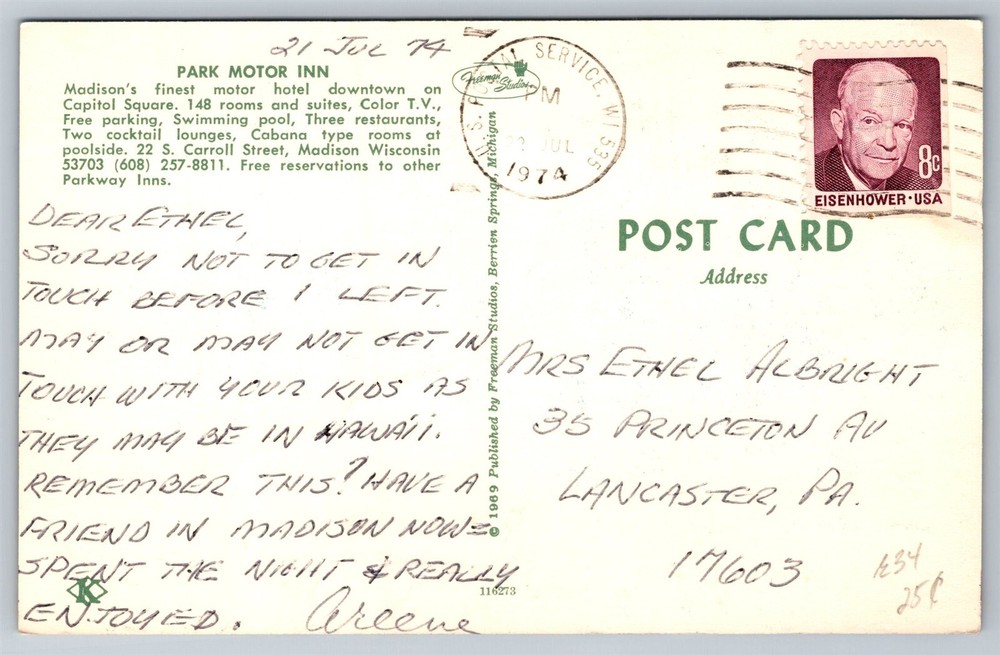 21 JUL 74
PARK MOTOR INN
Madison's finest motor hotel downtown on
Capitol Square. 148 rooms and suites, Color T.V.,
Free parking, Swimming pool, Three restaurants,
Two cocktail lounges, Cabana type rooms at
poolside. 22 S. Carroll Street, Madison Wisconsin
53703 (608) 257-8811. Free reservations to other
Parkway Inns.
DEAR ETHEL,
SORRY NOT TO GET IN
TOUCH BEFORE I LEFT.
MAY OR MAY NOT GET IN
TOUCH WITH YOUR KIDS AS
THEY MAY BE IN HAWAII.
REMEMBER THIS? HAVE A
FRIEND IN MADISON NOW=
SPENT THE NIGHT & REALLY
ENJOYED.
K
© 1969 Published by Freeman Studios, Berrien Springs, Michigan
116273
Freeman Studios
U.S. POSTAL SERVICE, WI 535
PM
JUL
1974
8c
EISENHOWER·USA
POST CARD
Address
MRS ETHEL ALBRIGHT
35 PRINCETON AV
LANCASTER, PA.
17603
25¢